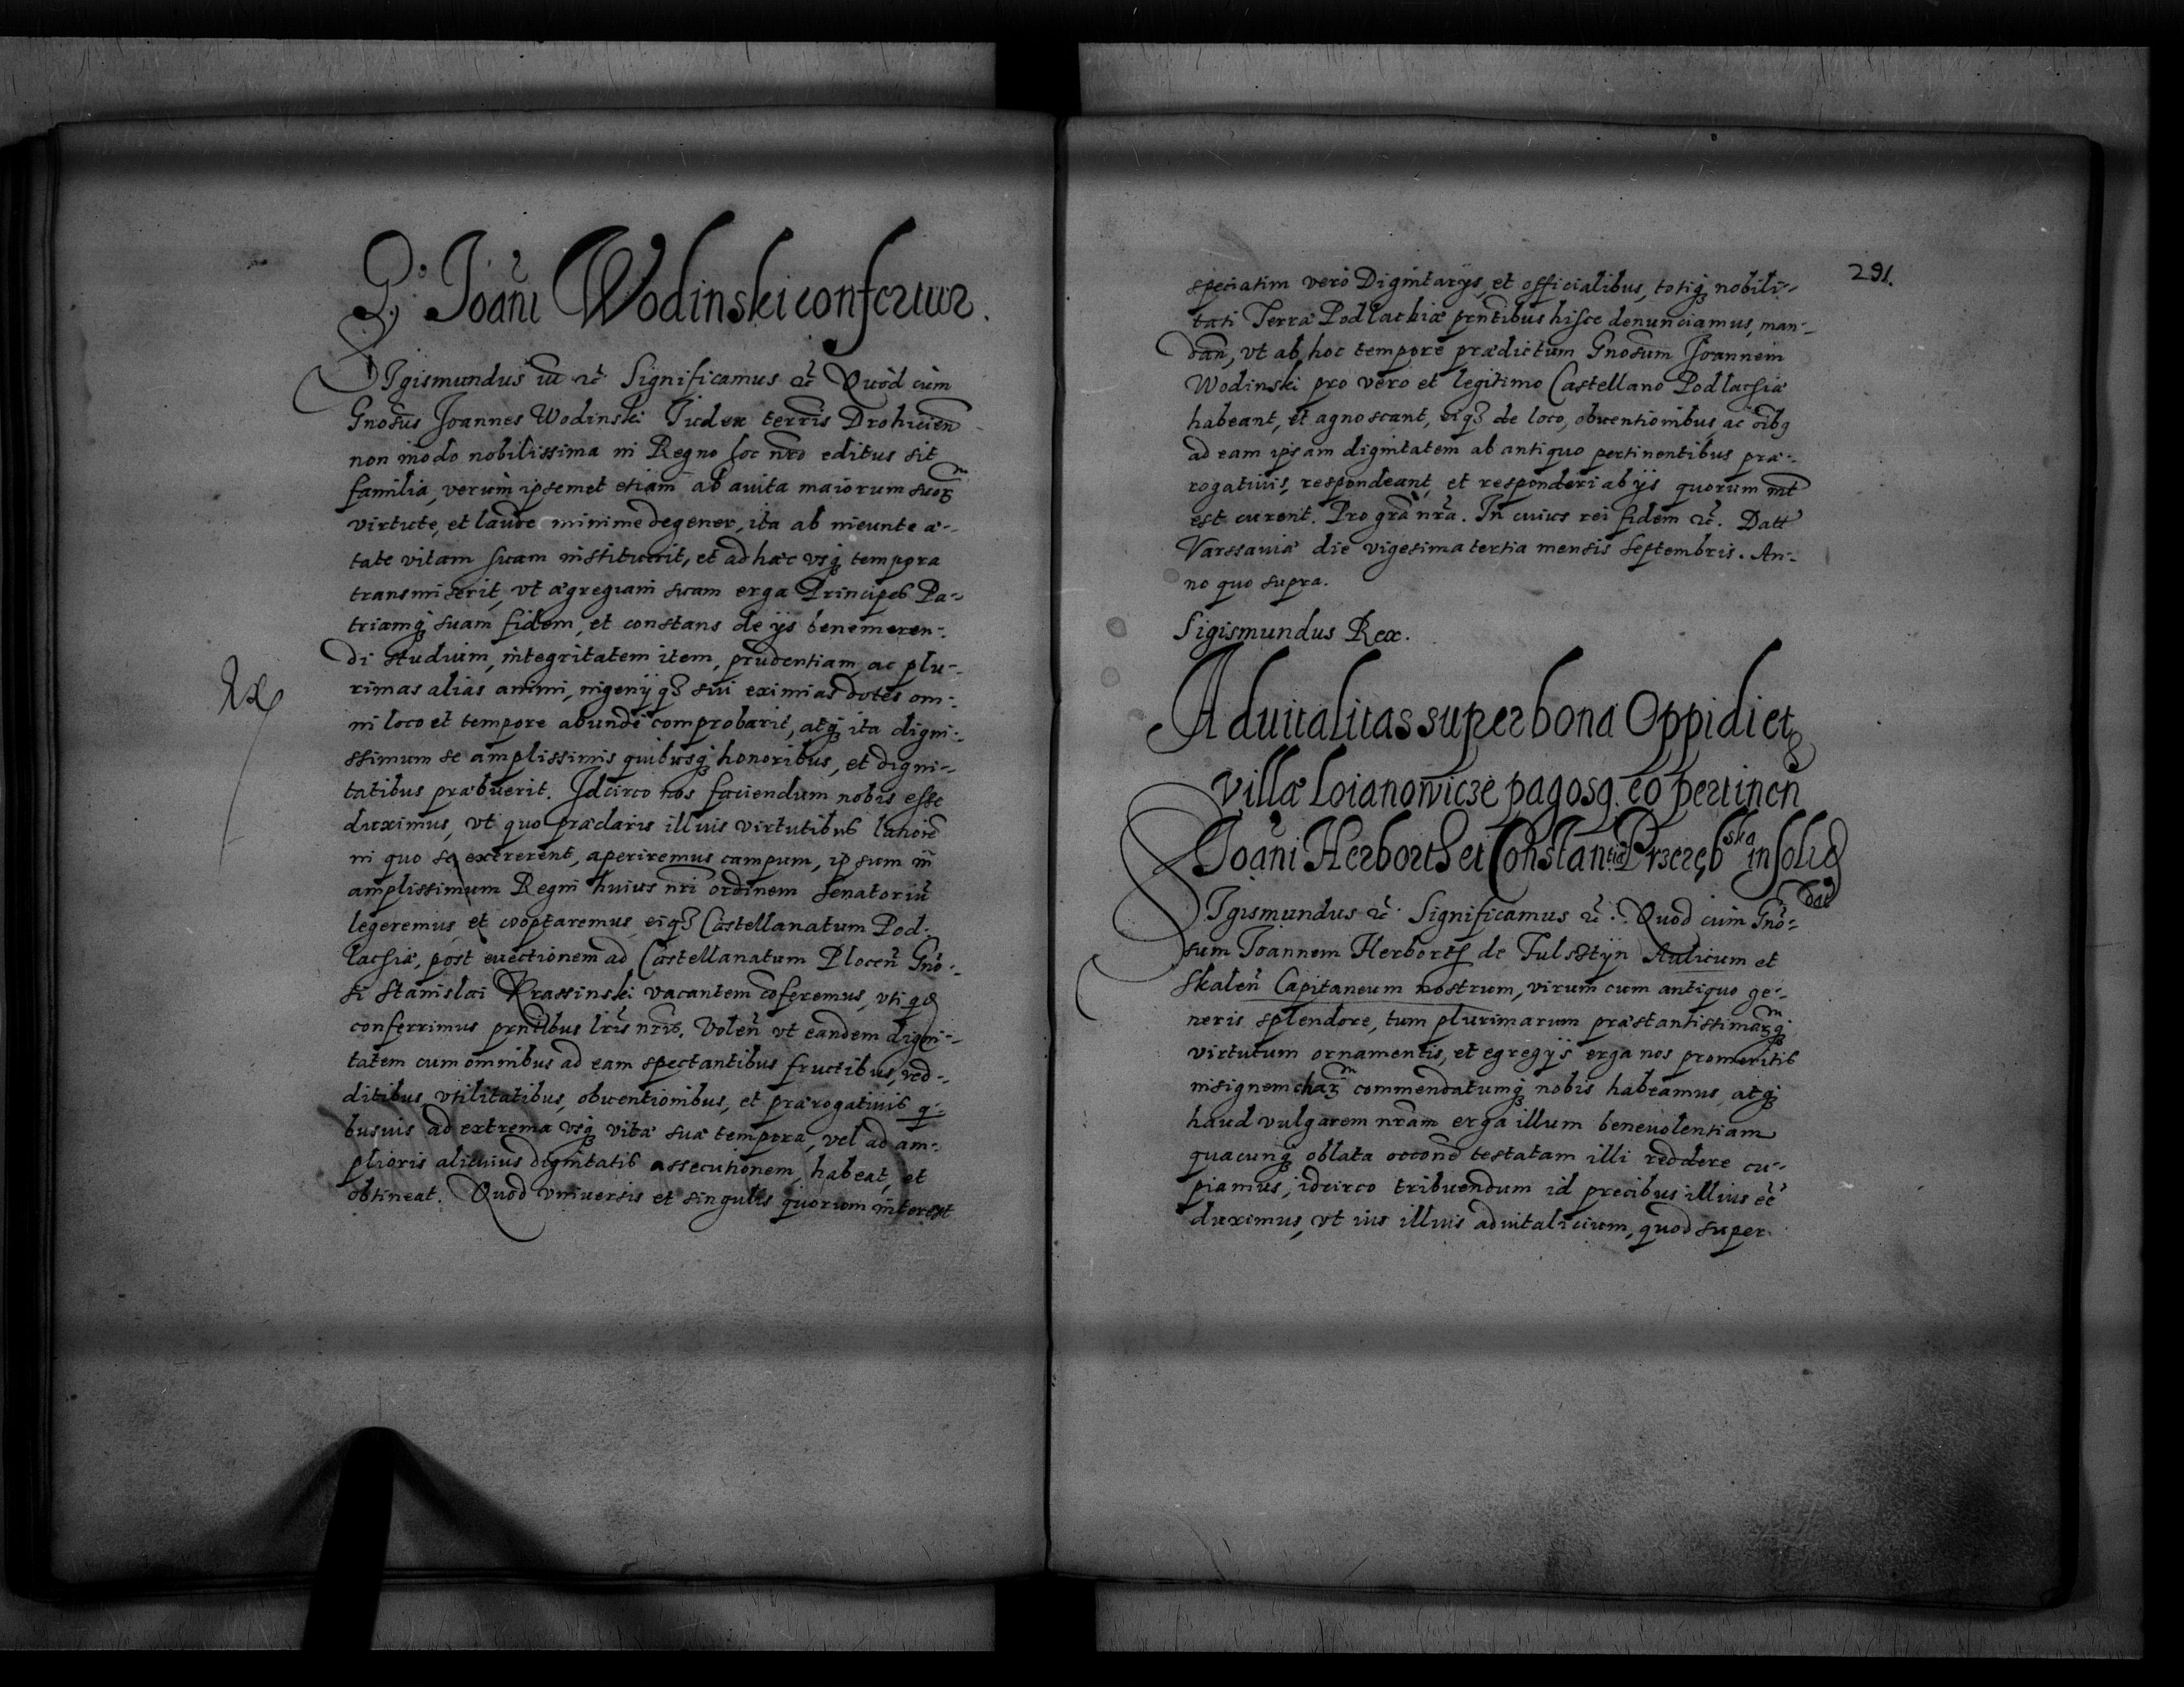 G. Joañi Wodinski confertur.
SIgismundus iii ꝛč Significamus ꝛč Quòd cùm
Gnosus Joannes Wodinski Iudex terris Drohicien̄
non modo nobilissima in Regno hoc nr̄o editus sit
familia, verùm ipsemet etiam ab auita maiorum suorꝫ
virtute, et laude minime degener, ita ab ineunte æ-
tate vitam suam instituerit, et ad hæc vsq̨ tempora
transmiserit, vt ægregiam suam erga Principes Pa-
triamq̨ suam fidem, et constans de ijs benemeren-
di studium, integritatem item, prudentiam, ac plu-
rimas alias animi, ingenijqꝫ sui eximias dotes om-
ni loco et tempore abundè comprobarit, atq̨ ita digni-
ssimum se amplissimis quibusq̨ honoribus, et digni-
tatibus præbuerit. Idcirco nos faciendum nobis esse
duximus, vt quo præclaris illius virtutibus
in quo se exererent, aperiremus campum, ipsum in̄
amplissimum Regni huius nr̄i ordinem Senatoriū
legeremus, et cooptaremus, eiqꝫ Castellanatum Pod-
lachiæ, post euectionem ad Castellanatum Plocen̄ Gno-
si Stanislai Krassinski vacantem cōferemus, vti qđ
conferrimus prn̄tibus lr̄is nr̄is. Volen̄ vt eandem digni-
tatem cum omnibus ad eam spectantibus fructibus, red-
ditibus, vtilitatibus, obuentionibus, et prærogatiuis q̄-
busuis ad extrema vsq̨ vitæ suæ tempora, vel ad am-
plioris alicuius dignitatis assecutionem, habeat, et
obtineat. Quod vniuersis et singulis quorum interest
291.
speciatim verò Dignitarijs, et officialibus, totiq̨ nobili-
tati Terræ Podlachiæ prn̄tibus hisce denunciamus, man-
dan̄, vt ab hoc tempore prædictum Gnosum Joannem
Wodinski pro vero et legitimo Castellano Podlachiæ
habeant, et agnoscant, eiqꝫ de loco, obuentionibus, ac oībꝯ
ad eam ipsam dignitatem ab antiquo pertinentibus præ-
rogatiuis, respondeant, et responderi ab ijs quorum int̄
est curent. Pro gr̄a nr̄a. In cuius rei fidem ꝛč. Datt
Varssauiæ die vigesima tertia mensis Septembris. An-
no quo supra.
Sigismundus Rex.
Aduitalitas super bona Oppidi et
villæ Loianowicze pagosq. eo pertinen̄
Joañi Herborth et Constantiæ Przerębska in solid
dat
SIgismundus ꝛč. Significamus ꝛč. Quod cùm Gno-
sum Joannem Herborth de Fulsstijn Aulicum et
Skalen̄ Capitaneum nostrum, virum cum antiquo ge-
neris splendore, tum plurimarum præstantissimarꝫq̨
virtutum ornamentis, et egregijs erga nos promeritis
insignem charꝫ commendatumq̨ nobis habeamus, atq̨
haud vulgarem nr̄am erga illum beneuolentiam
quacunq̨ oblata occōne testatam illi reddere cu-
piamus, idcirco tribuendum id precibus illius eē
duximus, vt ius illius aduitalicium, quod super